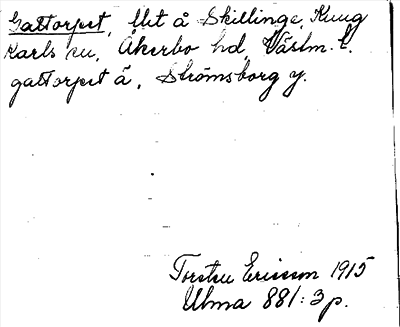 Gattorpet, lht å Skillinge, Kung
Karls sn, Åkerbo hd, Västm. l.
gattorpet ä, Strömsborg y.
Torsten Ericsson 1915
Ulma 881:3 p.